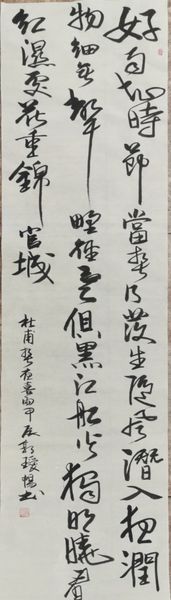 好雨知時節當春乃發生隨風潛入夜潤
物細無聲野徑雲俱黑江船火獨明曉看
紅濕處花重錦官城
杜甫春夜喜雨甲辰書